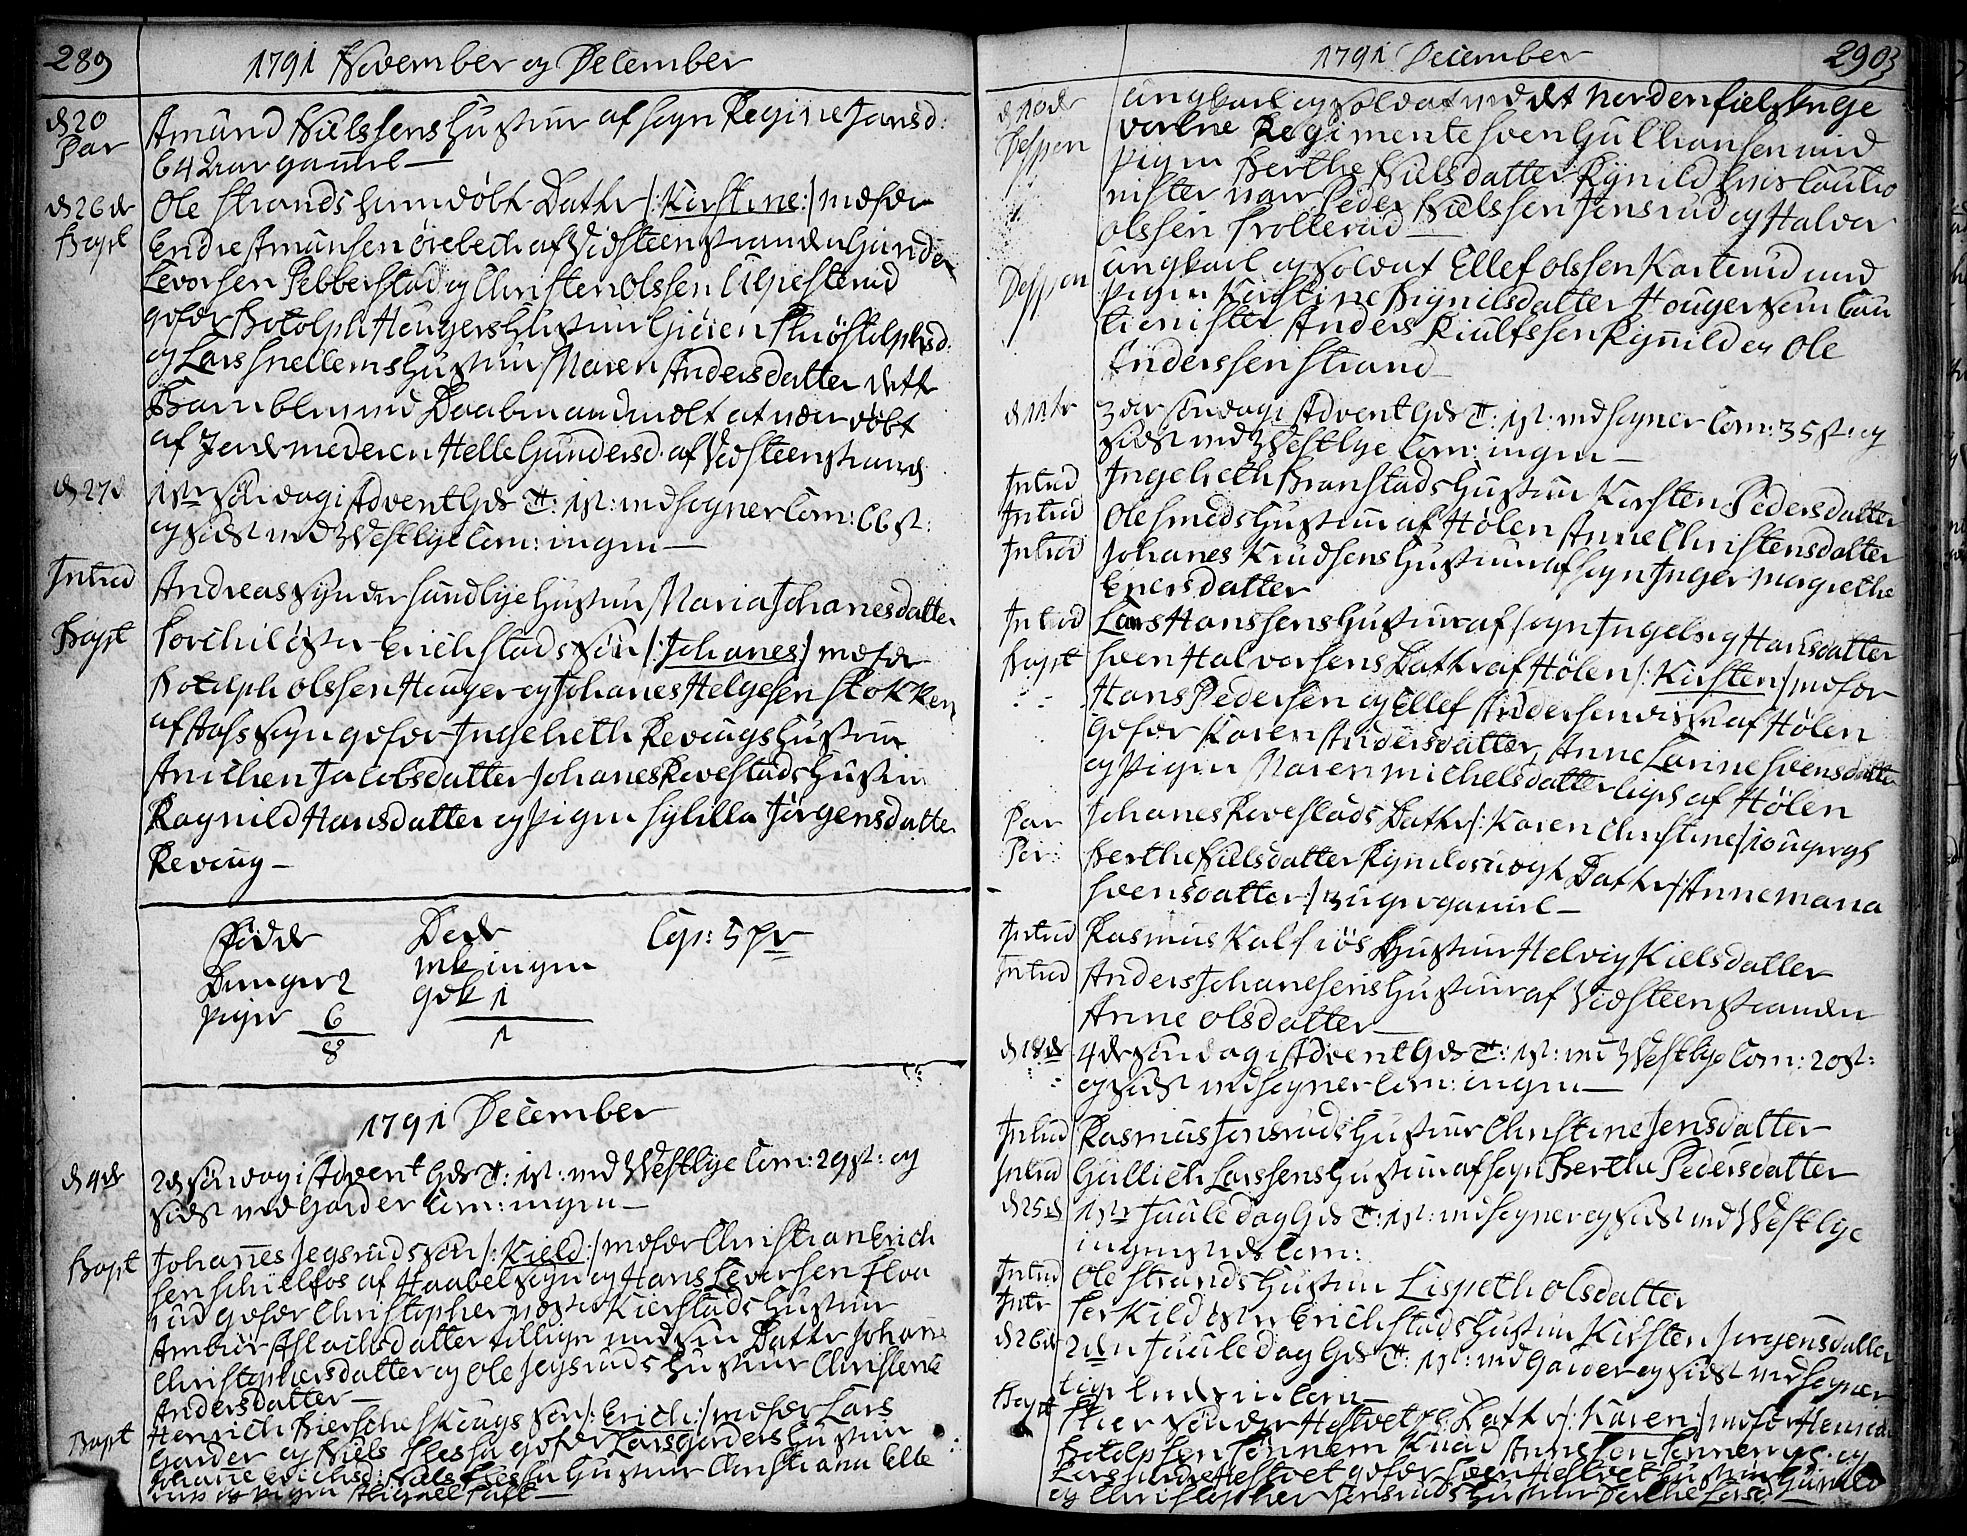 289
1791 November og December
d 20 Amund Nielssens Hustrue af sogn Regine Jansd:
Par 64 Aar gaml—
d 26de Ole Strands hiemdøbt Datter /: Kirstine :/ mdfdr
Bapt Endre Amunsen Ørebech af Vidsteenstranden Gunder
Levorsen Pebberstad og Christen Olssen
qvfdr Botolph Hougers Hustrue Giøren
og Lars Snellems Hustrue Maren Andersdatter dette
Barn blev ved Daaben anmeldt at være døbt
af Jordemoderen Helle Gundersd. af Vidsteenstrand
d 27d 1ste Søndag i Advent Gds T: 1st: med Sogner Com: 66 st:
og sidst med Westbye Com: ingen—
Introd Andreas Synder Sundbye Hustrue Maria Johanesdatter
Bapt Torchil Øster Erichstads Søn /: Johanes :/ mdfdr
Botolph Olssen Houger og Johanes Helgesen Stokken
af Aass Sogn qvfdr Ingebreth Revougs Hustrue
Anichen Jacobsdatter Johanes Revestads Hustrue
Ragnild Hansdatter og Pigen Sybilla Jørgensdatter
Revoug—
Fødde Døde Cop: 5 Pr
Drenger 2 mk ingen
Piger 6 qvk 1
8 1
1791 December
d 4de 2den Søndag i Advent Gds T: 1st: med Westbye Com: 29 st: og
sidst med Garder Com: ingen—
Bapt Johannes Jegsruds Søn /: Kield :/ mdfdr Christian Erich
sen Schielfos af Haabel Sogn og Hans Levorsen Floa
rud qvfdr Christopher Kierstads Hustrue
Ambiør Aslachsdatter tillige med sin Datter Johane
Christophersdatter og Ole Jegsruds Hustrue Christense
Andersdatter—
Bapt Henrich Bierche Skougs Søn /: Erich :/ mdfdr Lars
Garder og Niels qvfdr Lars Garders Hustrue
Johane Erichsd: Niels Hustrue Christiana Elle
og Pigen
1791 December
290
d 10de Ungkarl og Soldat ved det Nordenfielske
Despon vorbne Regimente Sven Gulchansen med
Pigen Berthe Nielsdatter Rynild hvis Cautio
nister var Peder Nielssen Jensrud og Halvor
Olssen Trollerud—
Despon Ungkarl og Soldat Ellef Olssen Karlsrud med
Pigen Kirstine Bignilsdatter Houger som Cau
tionister Anders Kiulfssen Rynild og Ole
Anderssen Strand—
d 11te 3die Søndag i Advent Gds T: 1st: med Sogner Com: 35 st: og
sidst med Westbye Com: ingen—
Introd Ingebreth Branstads Hustrue Kirsten Pedersdatter
Introd Ole Smeds Hustrue af Hølen Anne Christensdatter
Introd Johanes Knudsens Hustrue af sogn Inger Magrethe
Enersdatter
Introd Lars Hanssens Hustrue af sogn Ingeborg Hansdatter
Bapt Sven Halvorsens Datter af Hølen /: Kirsten :/ mdfdr
Hans Pedersen og Ellef Andersen af Hølen
qvfdr Karen Andersdatter, Anne Larine Svensdatter
og Pigen Maren Michelsdatter ligl: af Hølen
Par Johanes Revestads Datter /: Karen Christine :/ 10 uger gl
Par: Berthe Nielsdatter Rynild Datter /: Anne Maria
Svensdatter :/ 3 uger gaml—
Introd Rasmus Kalfiøs Hustrue Helvig Kielsdatter
Introd Anders Johanesens Hustrue af Vidsteenstranden
Anne Olsdatter—
d 18de 4de Søndag i Advent Gds T: 1st: med Westbye Com: 20 st:
og sidst med Sogner Com: ingen—
Introd Rasmus Jonsruds Hustrue Christine Jensdatter
Introd Gullich Larssens Hustrue af sogn Berthe Pedersdatter
d 25d 1ste Juule Dag Gds T: 1st: med Sogner og sidst med Westbye
ingensteds Com:
Introd Ole Strands Hustrue Lispeth Olsdatter
Intr Torkild Østre Erichstads Hustrue Kirsten Jørgensdatter
d 26d 2den Juule Dag Gds T: 1st: med Garder og sidst med Sogner
Bapt Hestvet Datter /: Karen :/ mdfdr Henrich
Botolphsen Tonnem Knud Tonnem og
Lars Hestvet qvfdr Sven Hestvet Hustrue Gunild
og Christopher Jensruds Hustrue Berthe Larsd:—